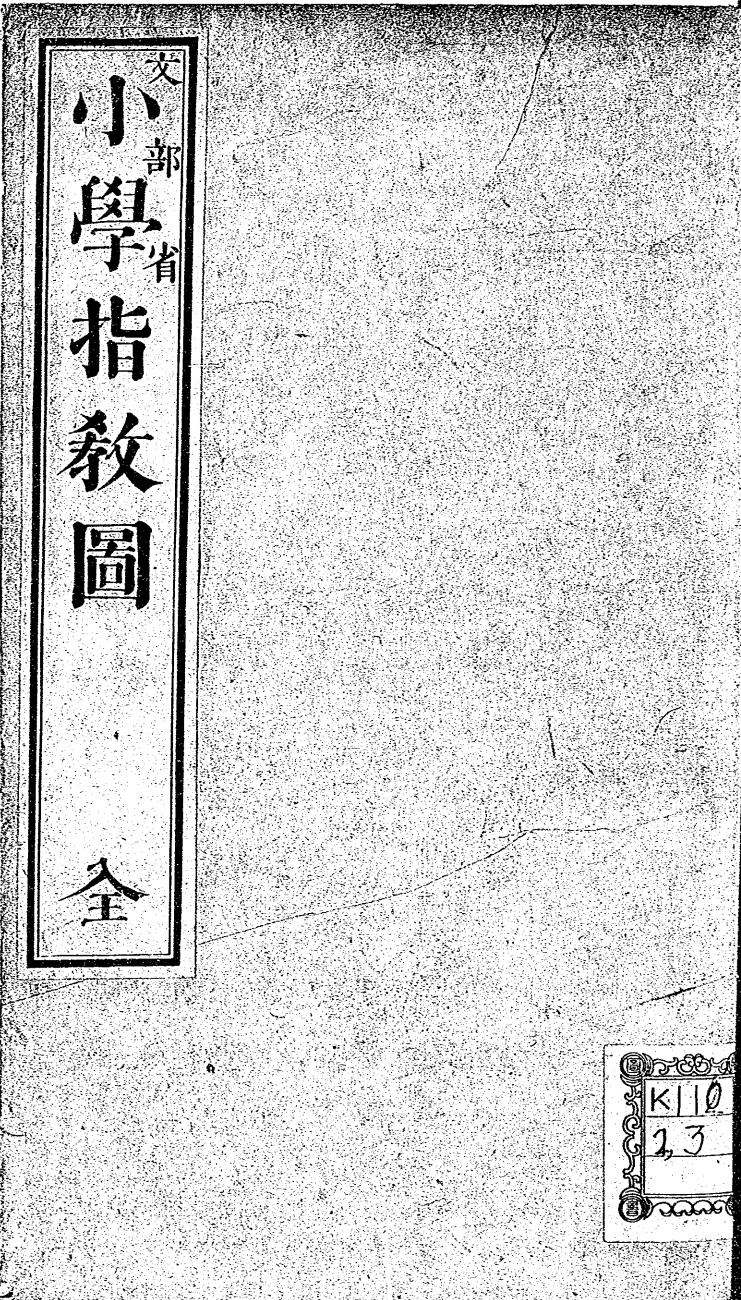 文部省
小學指教圖
全
K110
2,3